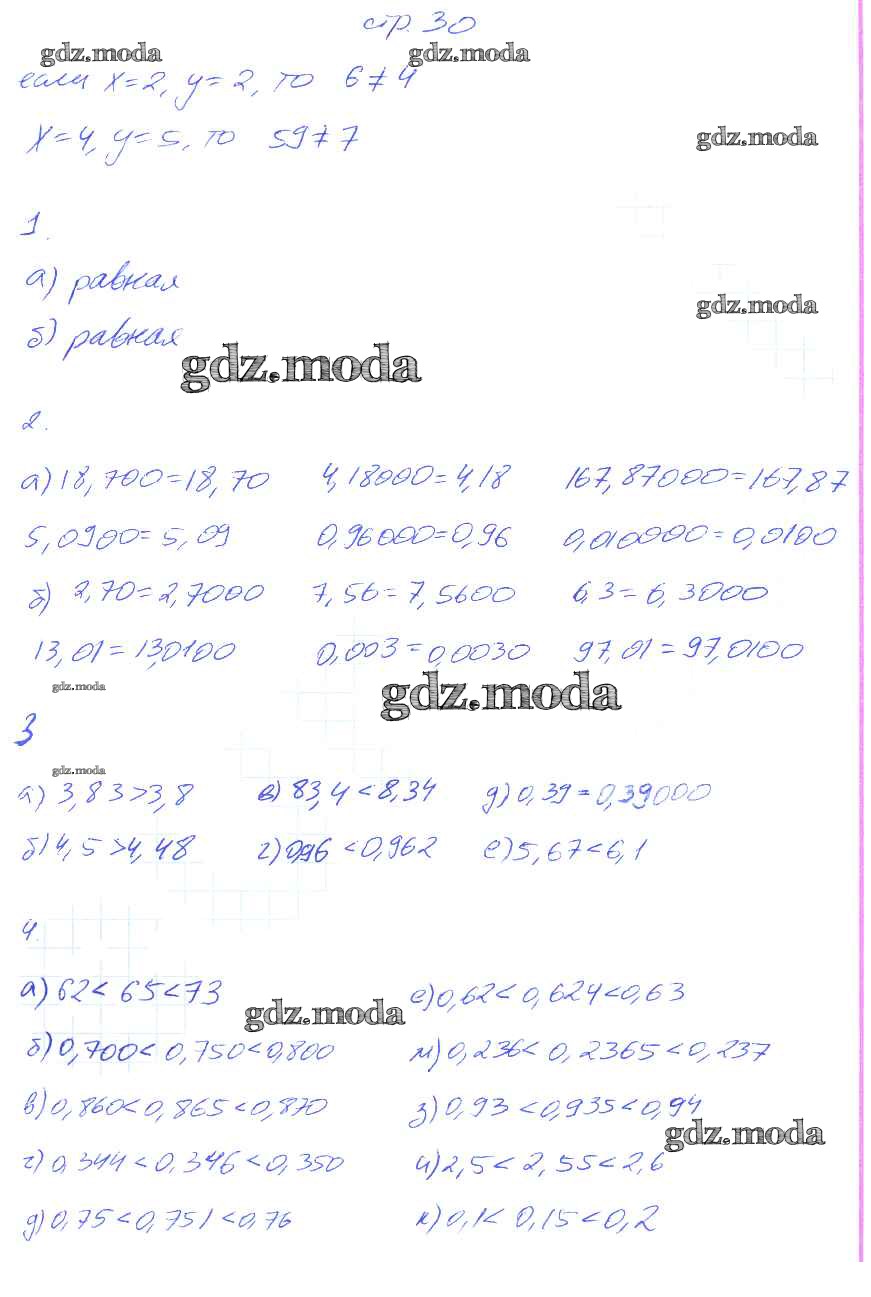 стр. 30
gdz.moda gdz.moda
если x=2, y=2, то 6≠4
x=4, y=5, то 59≠7
gdz.moda
1.
а) равная
gdz.moda
б) равная
gdz.moda
2.
а) 18,700=18,70 4,18000=4,18 167,87000=167,87
5,0900=5,09 0,96000=0,96 0,010000=0,0100
б) 2,70=2,7000 7,56=7,5600 6,3=6,3000
13,01=13,0100 0,003=0,0030 97,01=97,0100
gdz.moda gdz.moda
3
gdz.moda
а) 3,83>3,8 в) 83,4<8,34 д) 0,39=0,39000
б) 4,5>4,48 г) 0,96<0,962 е) 5,67<6,1
4.
а) 62<65<73 е) 0,62<0,624<0,63
gdz.moda
б) 0,700<0,750<0,800 м) 0,236<0,2365<0,237
в) 0,860<0,865<0,870 з) 0,93<0,935<0,94
gdz.moda
г) 0,344<0,346<0,350 и) 2,5<2,55<2,6
д) 0,75<0,751<0,76 к) 0,1<0,15<0,2